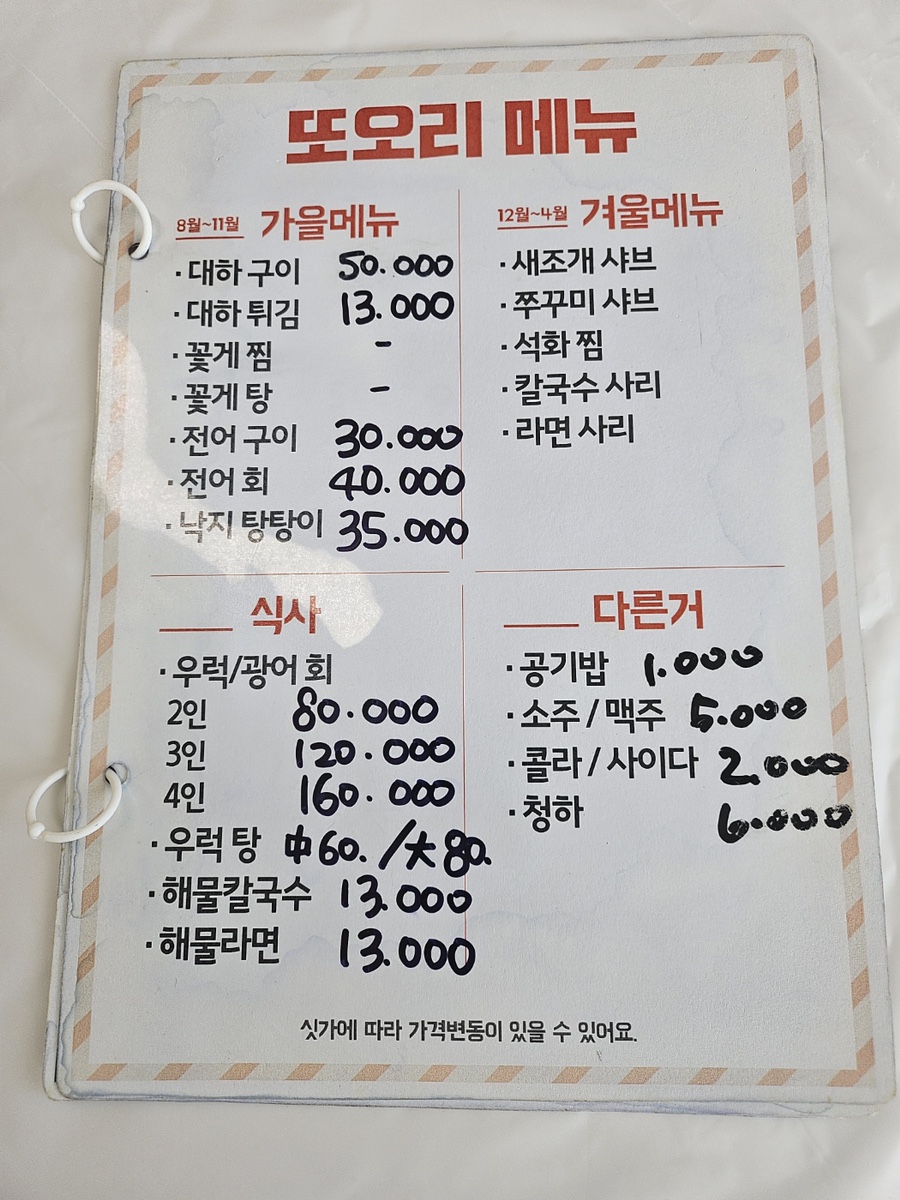 또오리 메뉴
8월~11월 가을메뉴
· 대하 구이 50.000
· 대하 튀김 13.000
· 꽃게 찜 -
· 꽃게 탕 -
· 전어 구이 30.000
· 전어 회 40.000
· 낙지 탕탕이 35.000
12월~4월 겨울메뉴
· 새조개 샤브
· 쭈꾸미 샤브
· 석화 찜
· 칼국수 사리
· 라면 사리
식사
· 우럭/광어 회
2인 80.000
3인 120.000
4인 160.000
· 우럭 탕 中60. /大80.
· 해물칼국수 13.000
· 해물라면 13.000
다른거
· 공기밥 1.000
· 소주 / 맥주 5.000
· 콜라 / 사이다 2.000
· 청하 6.000
싯가에 따라 가격변동이 있을 수 있어요.